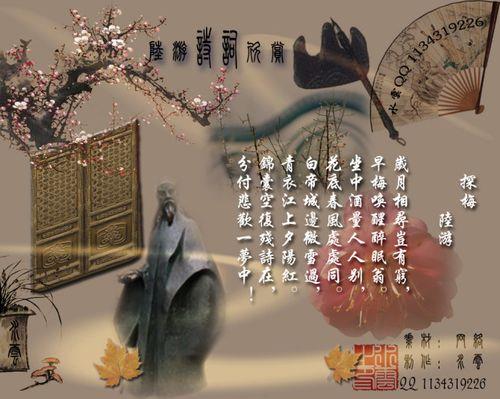 陸游詩詞欣賞
水雲QQ 1134319226
探梅
陸游
歲月相尋豈有窮，
早梅喚醒醉眠翁。
坐中酒量人人別，
花底春風處處同。
白帝城邊微雪過，
青衣江上夕陽紅。
錦囊空復殘詩在，
分付悲歡一夢中！
水雲
素材：网絡
制作：水雲
QQ 1134319226